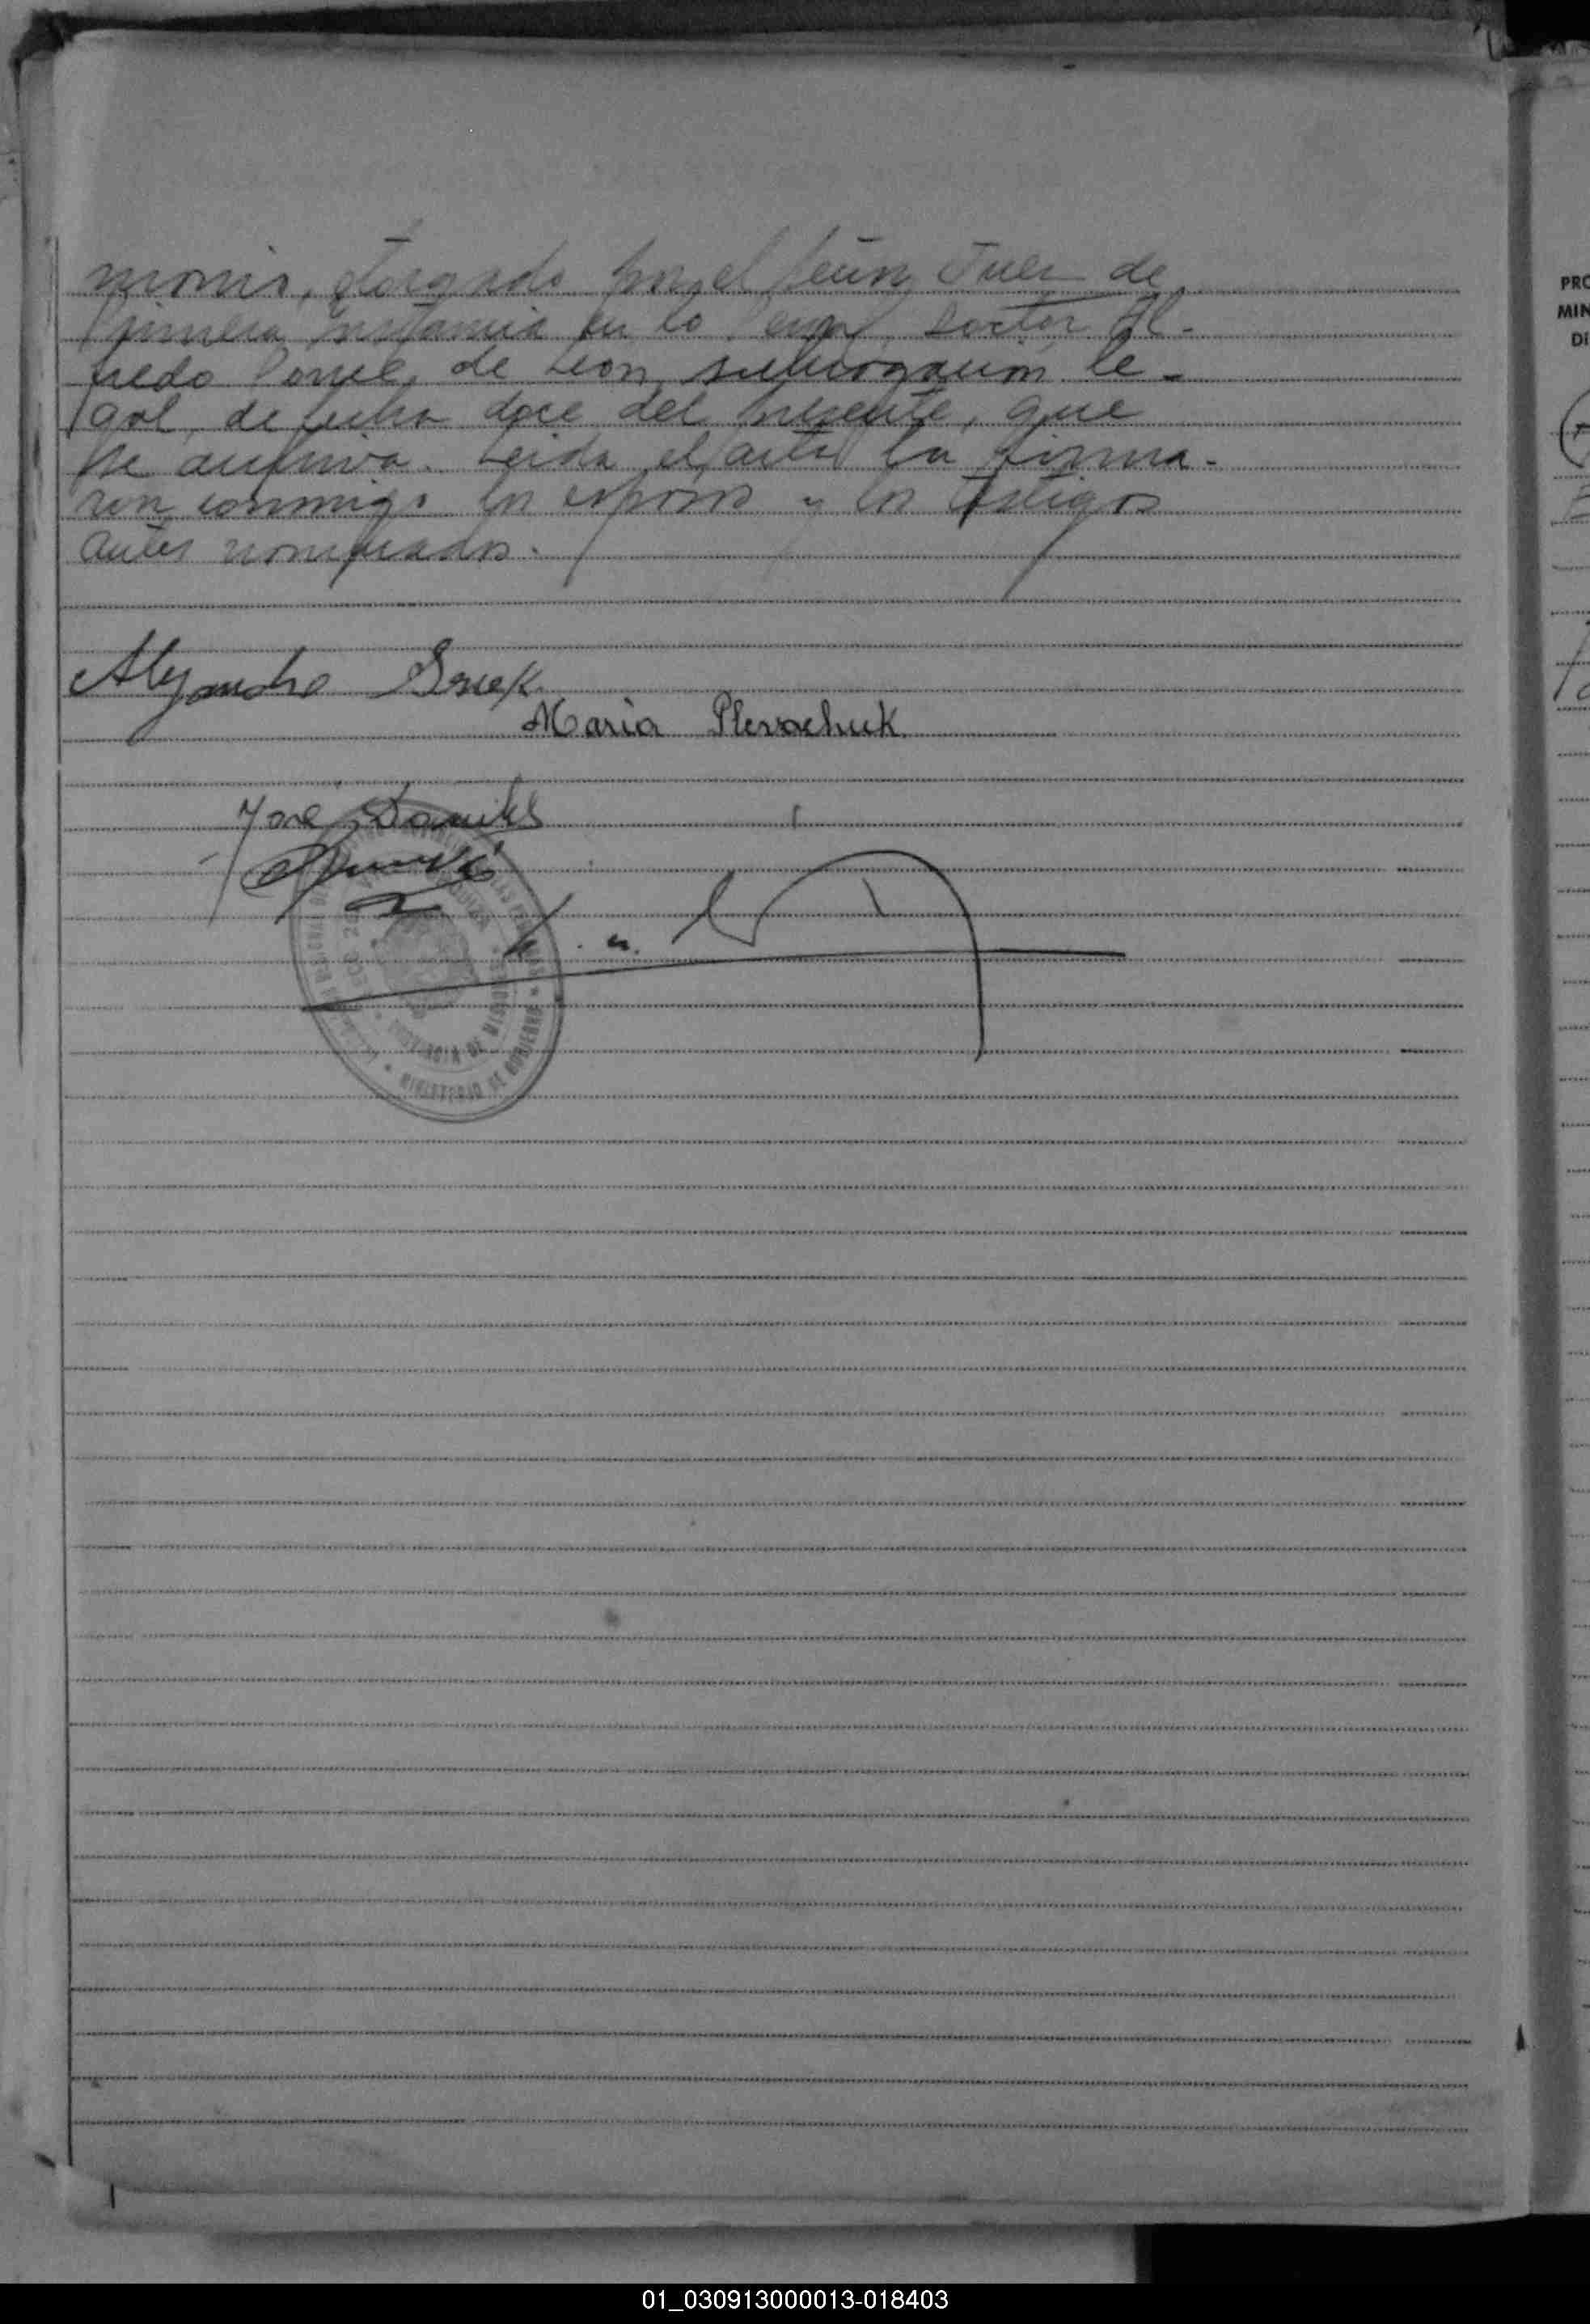 monio, otorgado por el señor Juez de
Primera instancia en lo Penal, Doctor Al-
fredo de León, subrogación le-
gal, de fecha doce del presente, que
se archiva. Leida el acta la firma-
ron conmigo los esposos y los testigos
antes nombrados.
Alejandro
Maria Plevachuk
José
PROVINCIA DE MISIONES
MINISTERIO DE GOBIERNO
PRO
MIN
DI
01_030913000013-018403